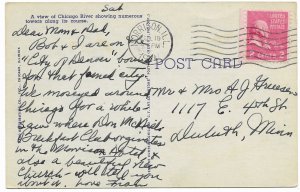 Sat
A view of Chicago River showing numerous
towers along its course.
Dear Mom & Dad,
Bob & I are on
"City of Denver" bound
for that famed city.
We moseyed around
Chicago for a while
Saw where Don McNeill's
Breakfast Club originates
in the Morrison Hotel &
also a beautiful
Church - will tell you
about it. Love
POST CARD
UNITED STATES POSTAGE
2 CENTS 2
Mr & Mrs A J
1117 E. 4th St
Duluth, Minn